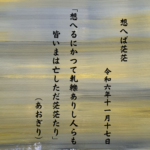 想へば茫茫
令和六年十一月十七日
「想へるにかつて軋轢ありしんらも
皆いまは亡しただ茫茫たり」
（あおぎり）